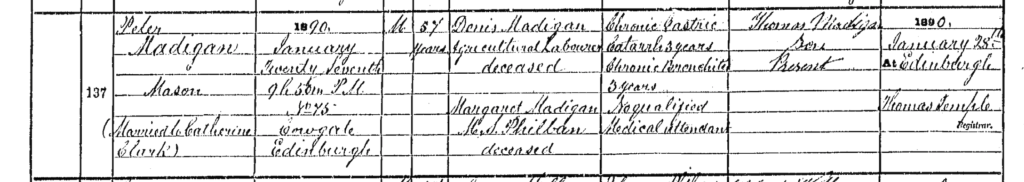 137
Peter
Madigan
Mason
(Married to Catherine
Clark)
1890.
January
Twenty Seventh
9h 55m P.M.
No 75
Cowgate
Edinburgh
M
57
Years
Denis Madigan
Agricultural Labourer
deceased
Margaret Madigan
M.S. Philban
deceased
Chronic Gastric
Catarrh 3 years
Chronic Bronchitis
3 years
No qualified
Medical attendant
Thomas Madigan
Son
Present
1890.
January 28th
At Edinburgh
Thomas Temple
Registrar.